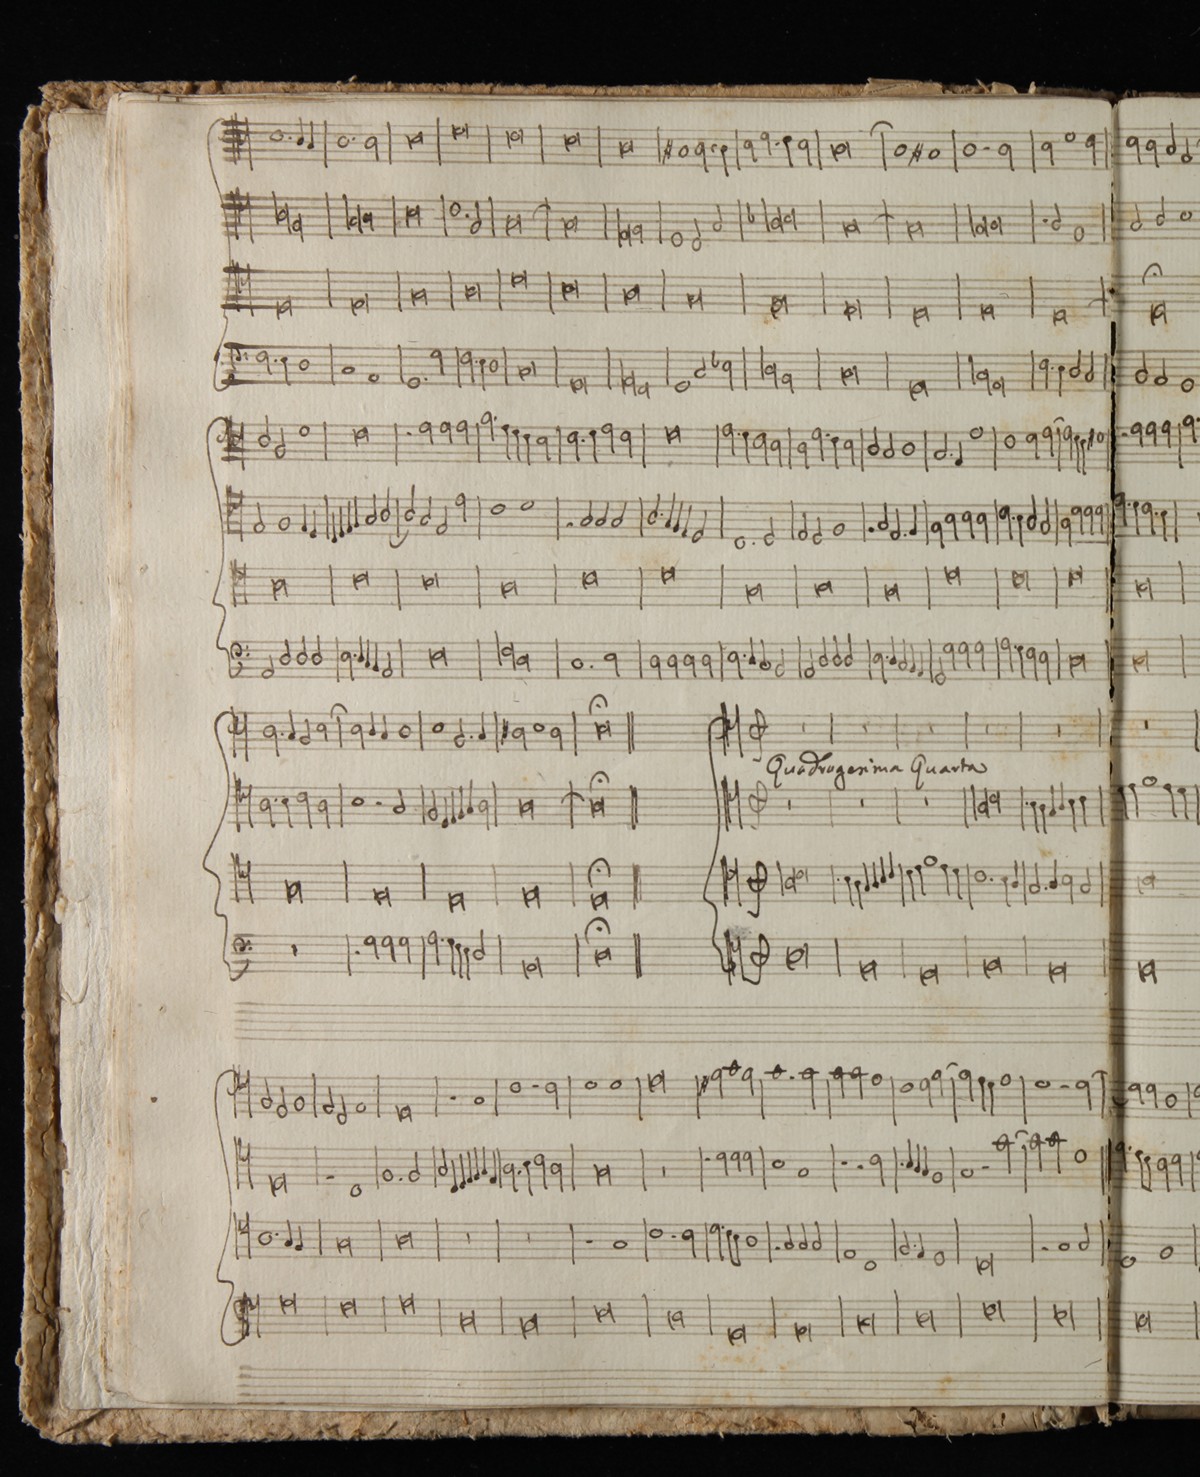 Quadragesima Quarta